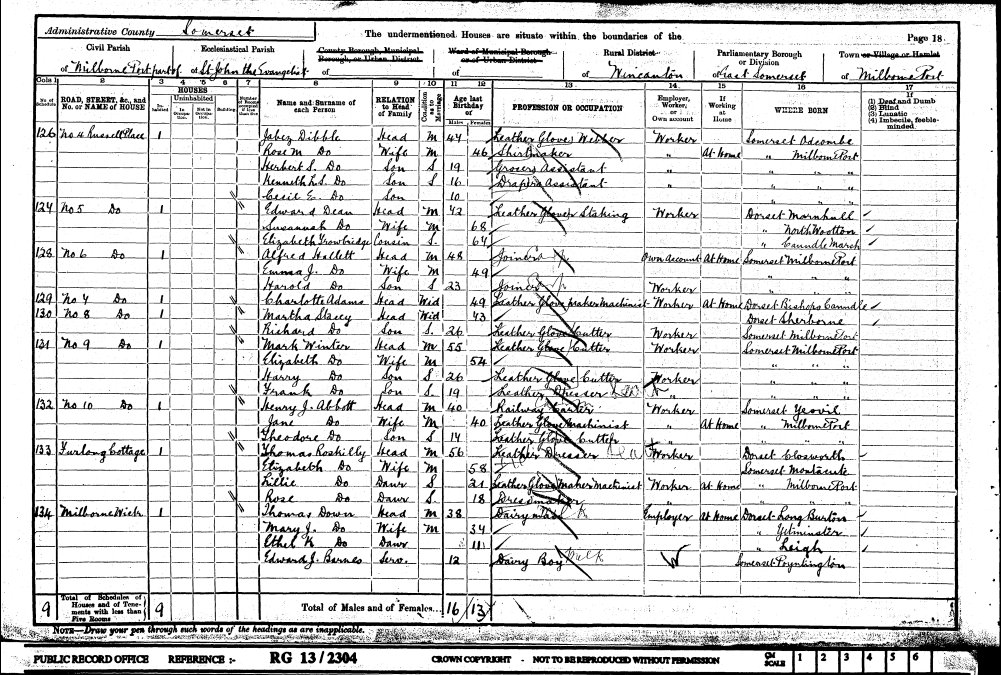 Administrative County Somerset
The undermentioned Houses are situate within the boundaries of the
Page 18
Civil Parish Ecclesiastical Parish County Borough, Municipal Borough, or Urban District Ward of Municipal Borough or of Urban District Rural District Parliamentary Borough or Division Town or Village or Hamlet
of Milborne Port part of of St John the Evangelist of of of Wincanton of East Somerset of Milborne Port
Cols 1 2 3 4 5 6 7 8 9 10 11 12 13 14 15 16 17
No. of Schedule ROAD, STREET, &c., and No. or NAME of HOUSE HOUSES Inhabited Uninhabited In Occupation Not in Occupation Building Number of Rooms occupied if less than five Name and Surname of each Person RELATION to Head of Family Condition as to Marriage Age last Birthday of Males Females PROFESSION OR OCCUPATION Employer, Worker, or Own account If Working at Home WHERE BORN (1) Deaf and Dumb (2) Blind (3) Lunatic (4) Imbecile, feeble-minded.
126 No 4 Russell Place 1 Jabez Dibble Head M 47 Leather Glove Webber Worker Somerset Adcombe
Rose M Do Wife M 46 Shirtmaker " At Home " Milborne Port
Herbert S. Do Son S 19 Grocers Assistant " " "
Kenneth L S. Do Son S 16 Drapers Assistant " " "
Cecil E. Do Son 10 " "
127 No 5 Do 1 Edward Dean Head M 42 Leather Glover Staking Worker Dorset Marnhull
Susannah Do Wife M 68 " North Wootton
Elizabeth Trowbridge Cousin S. 64 " Caundle Marsh
128 No 6 Do 1 Alfred Hallett Head M 48 Joiner Own Account At Home Somerset Milborne Port
Emma J. Do Wife M 49 " "
Harold Do Son S 23 Joiner Worker " "
129 No 7 Do 1 Charlotte Adams Head Wid 49 Leather Glove maker Machinist Worker At Home Dorset Bishops Caundle
130 No 8 Do 1 Martha Stacey Head Wid 43 Dorset Sherborne
Richard Do Son S. 26 Leather Glove Cutter Worker Somerset Milborne Port
131 No 9 Do 1 Mark Winter Head M 55 Leather Glove Cutter Worker Somerset Milborne Port
Elizabeth Do Wife M 54 " "
Harry Do Son S 26 Leather Glove Cutter Worker " "
Frank Do Son S 19 Leather Dresser " " "
132 No 10 Do 1 Henry J. Abbott Head M 40 Railway Carter Worker Somerset Yeovil
Jane Do Wife M 40 Leather Glove Machinist " At Home " Milborne Port
Theodore Do Son S 14 Leather Glove Cutter " " "
133 Furlong Cottage 1 Thomas Roskilly Head M 56 Leather Dresser Worker Dorset Closworth
Elizabeth Do Wife M 58 Somerset Montacute
Lillie Do Dawr S. 21 Leather Glove Maker Machinist Worker At Home " Milborne Port
Rose Do Dawr S. 18 Dressmaker " " "
134 Milborne Wick 1 Thomas Down Head M 38 Dairyman Employer At Home Dorset Long Burton
Mary J. Do Wife M 34 " Yetminster
Ethel K Do Dawr 11 " Leigh
Edward J. Barnes Serv. 12 Dairy Boy Milk W Somerset Poyntington
9 Total of Schedules of Houses and of Tenements with less than Five Rooms 9 Total of Males and of Females... 16 13
NOTE—Draw your pen through such words of the headings as are inapplicable.
PUBLIC RECORD OFFICE REFERENCE :- RG 13 / 2304 CROWN COPYRIGHT - NOT TO BE REPRODUCED WITHOUT PERMISSION CM SCALE 1 2 3 4 5 6